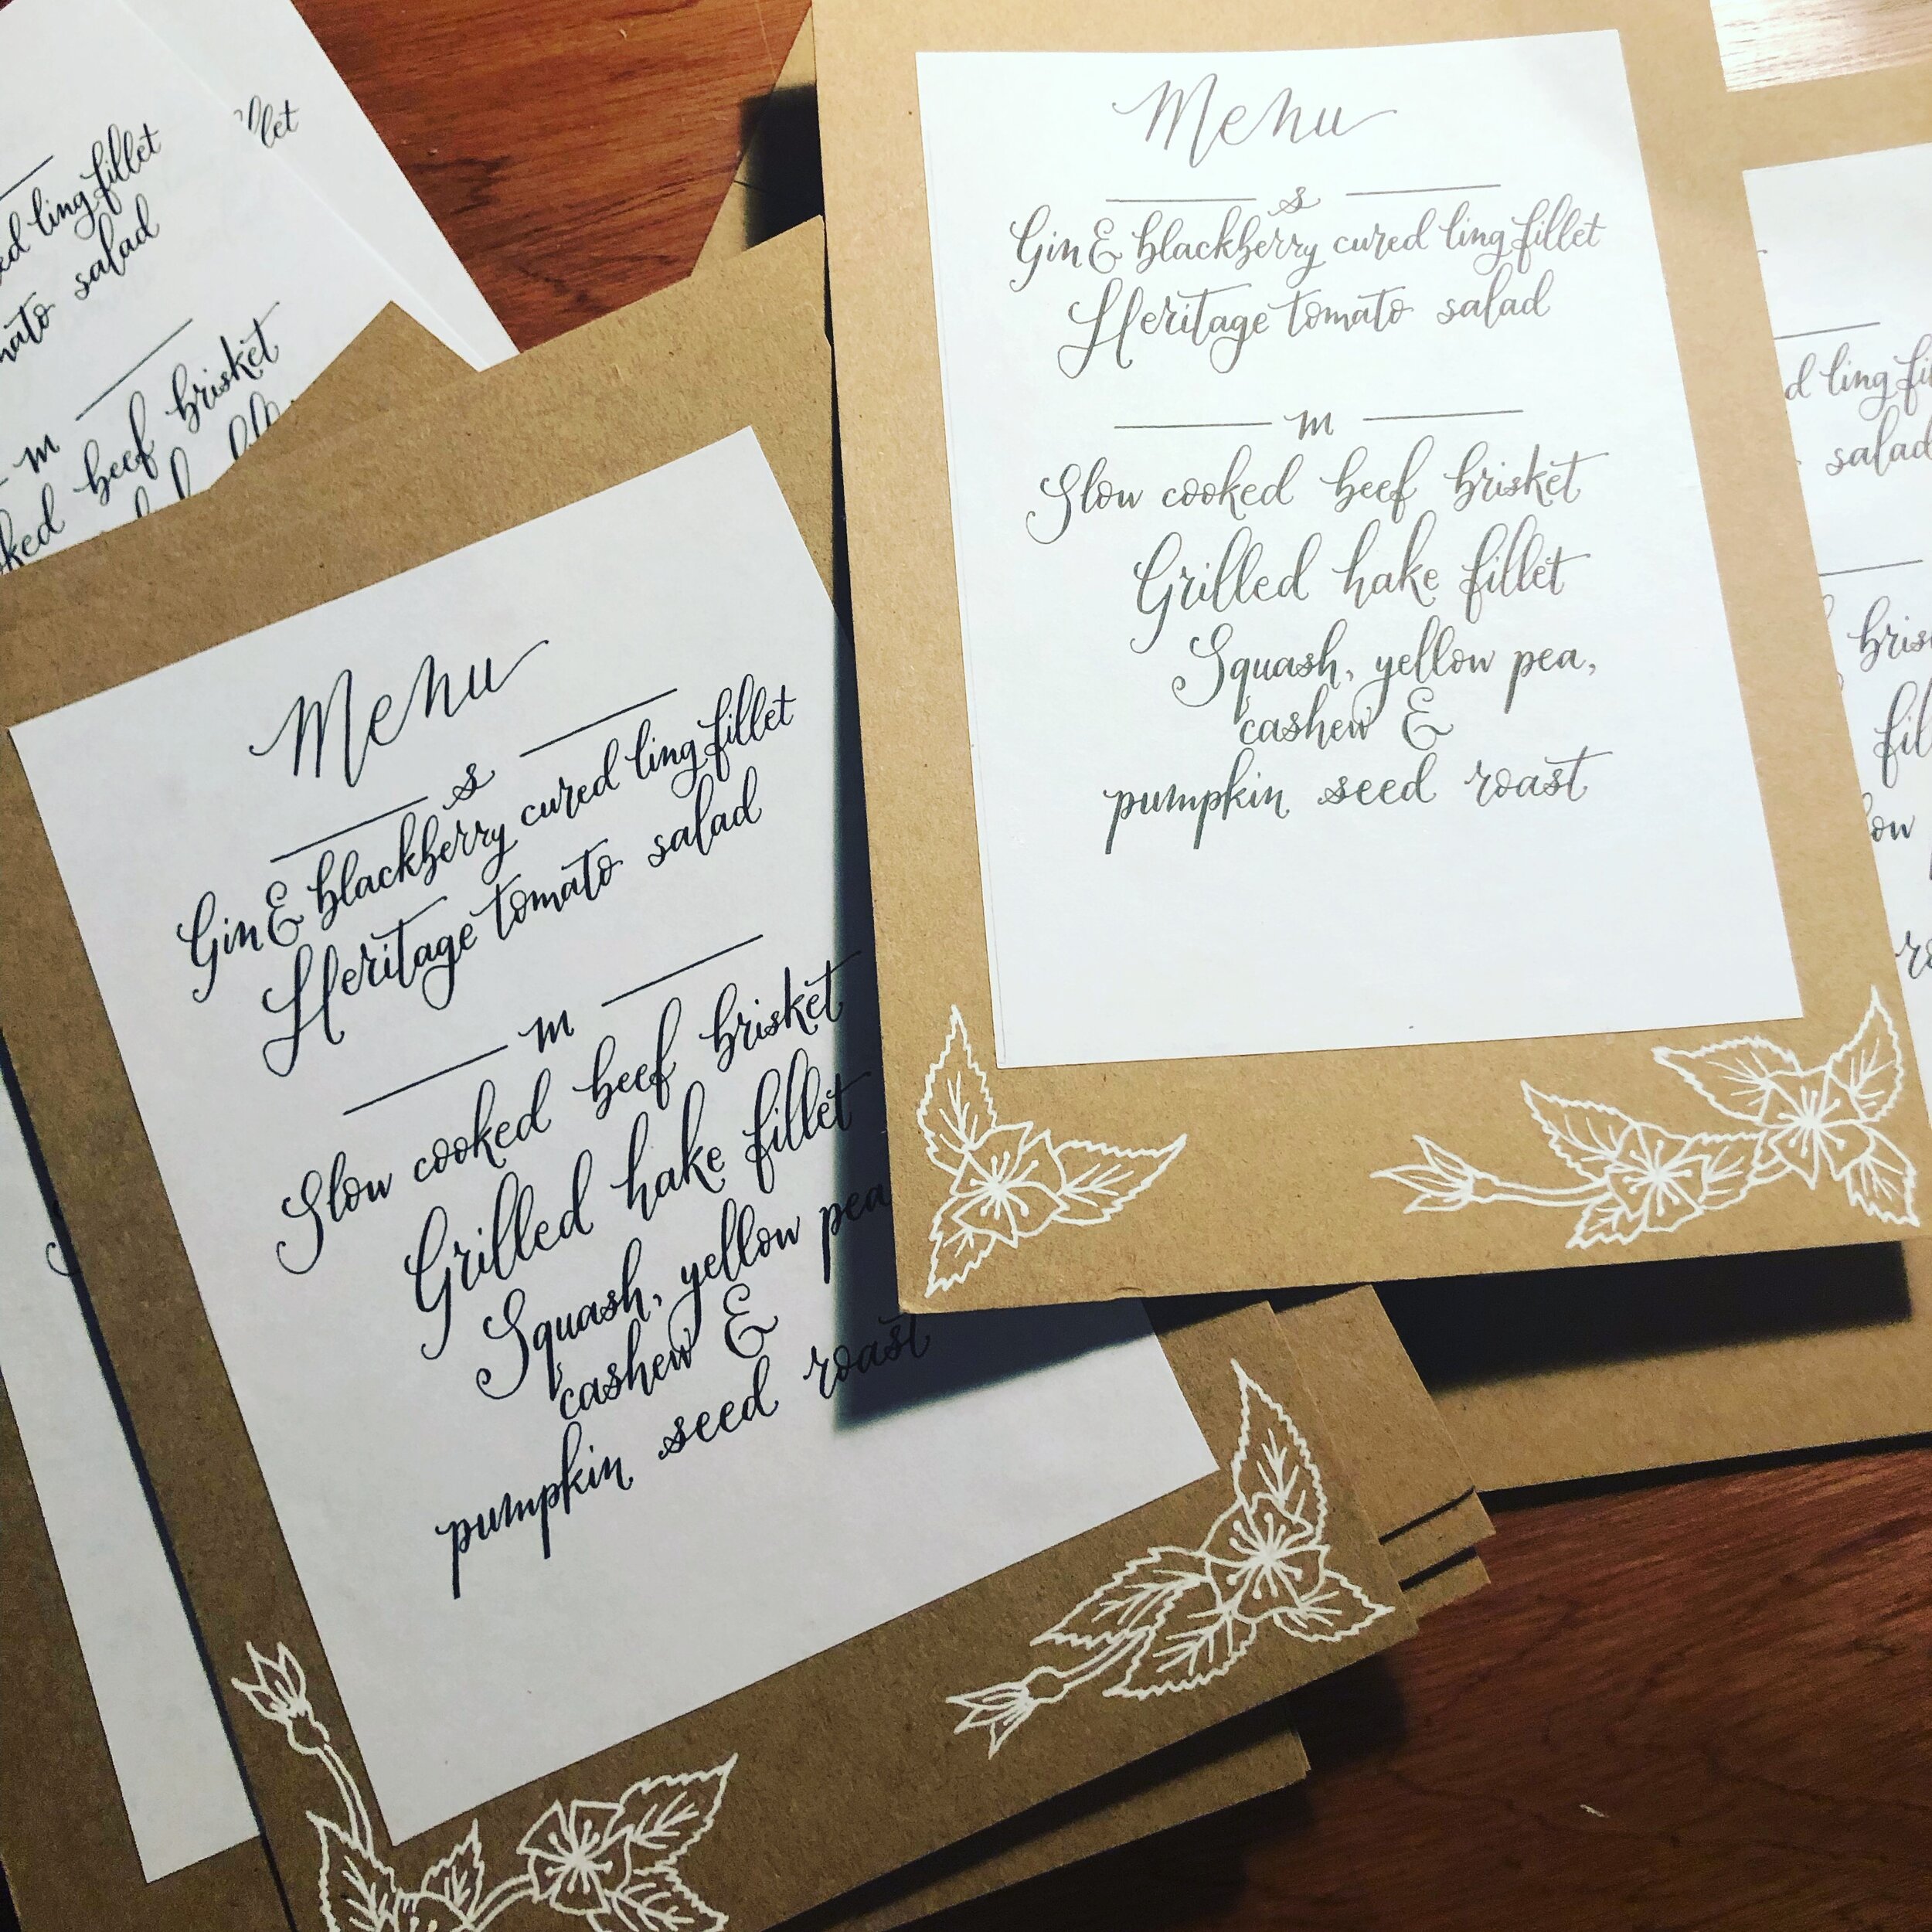 llet
ed ling fillet
salad
m
beef brisket
Menu
s
Gin & blackberry cured ling fillet
Heritage tomato salad
m
Slow cooked beef brisket
Grilled hake fillet
Squash, yellow pea
cashew &
pumpkin seed roast
Menu
s
Gin & blackberry cured ling fillet
Heritage tomato salad
m
Slow cooked beef brisket
Grilled hake fillet
Squash, yellow pea,
cashew &
pumpkin seed roast
d ling fi
salad
bris
fil
ow
ro